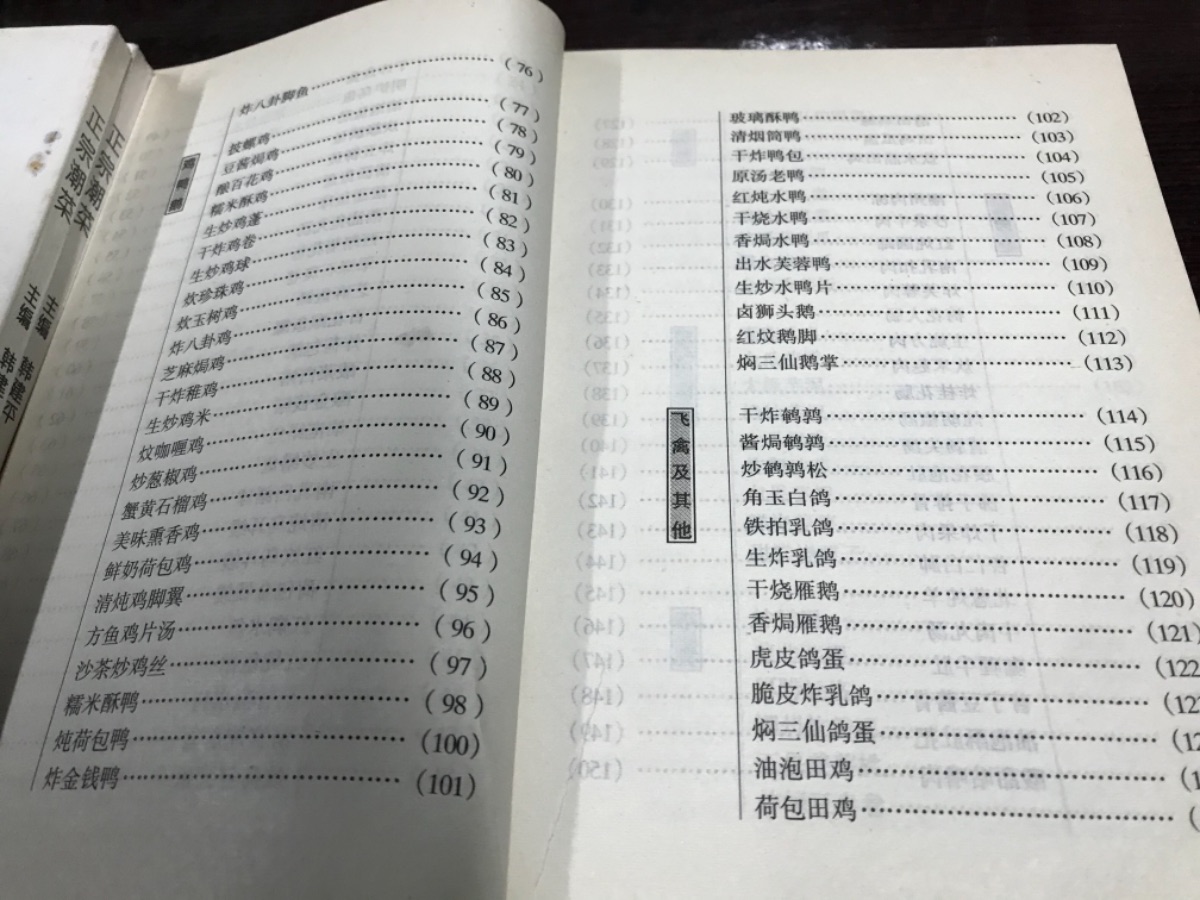 正宗潮菜 主编 韩建华
正宗潮菜 主编 韩建
炸八卦脚鱼……(76)
鸡 鸭 鹅
披螺鸡……(77)
豆酱焗鸡……(78)
酿百花鸡……(79)
糯米酥鸡……(80)
生炒鸡蓬……(81)
干炸鸡卷……(82)
生炒鸡球……(83)
炊珍珠鸡……(84)
炊玉树鸡……(85)
炸八卦鸡……(86)
芝麻焗鸡……(87)
干炸稚鸡……(88)
生炒鸡米……(89)
炆咖喱鸡……(90)
炒葱椒鸡……(91)
蟹黄石榴鸡……(92)
美味熏香鸡……(93)
鲜奶荷包鸡……(94)
清炖鸡脚翼……(95)
方鱼鸡片汤……(96)
沙茶炒鸡丝……(97)
糯米酥鸭……(98)
炖荷包鸭……(100)
炸金钱鸭……(101)
玻璃酥鸭……(102)
清烟筒鸭……(103)
干炸鸭包……(104)
原汤老鸭……(105)
红炖水鸭……(106)
干烧水鸭……(107)
香焗水鸭……(108)
出水芙蓉鸭……(109)
生炒水鸭片……(110)
卤狮头鹅……(111)
红炆鹅脚……(112)
焖三仙鹅掌……(113)
飞禽及其他
干炸鹌鹑……(114)
酱焗鹌鹑……(115)
炒鹌鹑松……(116)
角玉白鸽……(117)
铁拍乳鸽……(118)
生炸乳鸽……(119)
干烧雁鹅……(120)
香焗雁鹅……(121)
虎皮鸽蛋……(122
脆皮炸乳鸽……(12
焖三仙鸽蛋……(12
油泡田鸡……(1
荷包田鸡……(